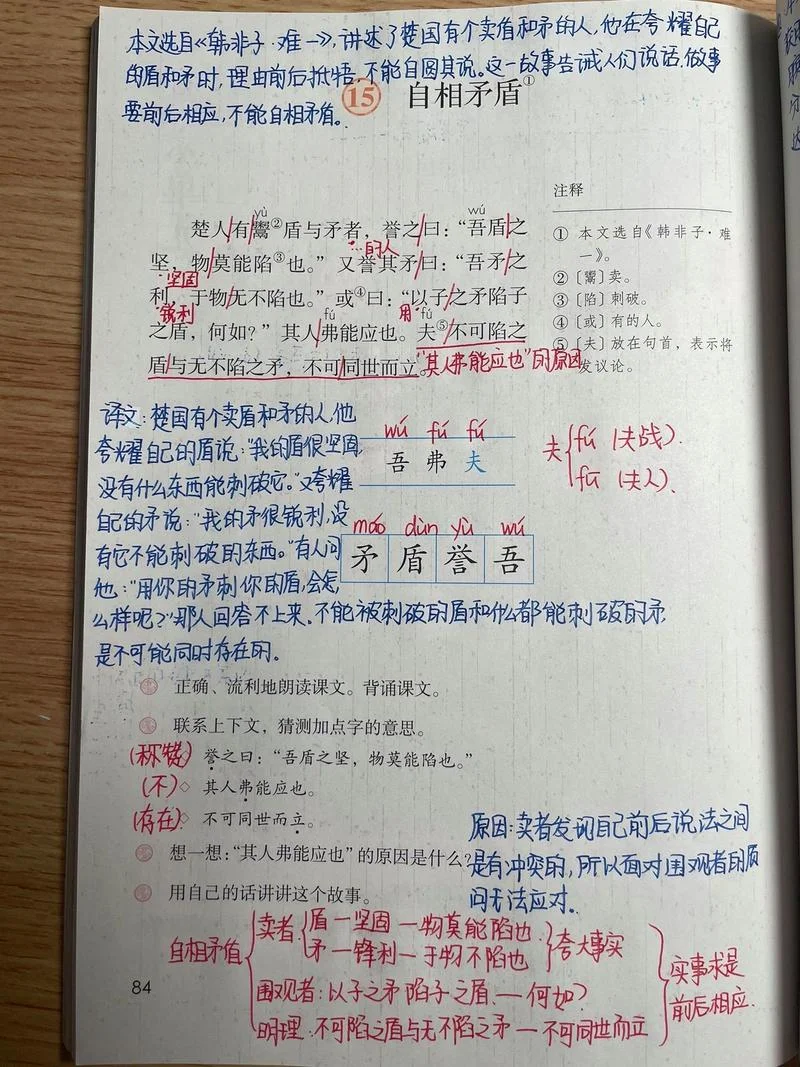 本文选自《韩非子·难一》,讲述了楚国有个卖盾和矛的人,他在夸耀自己
的盾和矛时,理由前后抵牾,不能自圆其说。这一故事告诫人们说话、做事
要前后相应,不能自相矛盾。
15 自相矛盾①
yù wú
楚人有鬻②盾与矛者,誉之曰:“吾盾之
的人
坚,物莫能陷③也。”又誉其矛曰:“吾矛之
坚固
利,于物无不陷也。”或④曰:“以子之矛陷子
锐利 fú 用 fú
之盾,何如?”其人弗能应也。夫⑤不可陷之
盾与无不陷之矛,不可同世而立。
“其人弗能应也”的原因
注释
① 本文选自《韩非子·难
一》。
② 〔鬻〕卖。
③ 〔陷〕刺破。
④ 〔或〕有的人。
⑤ 〔夫〕放在句首,表示将
发议论。
译文:楚国有个卖盾和矛的人,他
夸耀自己的盾说:“我的盾很坚固,
没有什么东西能刺破它。”又夸耀
自己的矛说:“我的矛很锐利,没
有它不能刺破的东西。”有人问
他:“用你的矛刺你的盾,会怎
么样呢?”那人回答不上来。不能被刺破的盾和什么都能刺破的矛,
是不可能同时存在的。
wú fú fú
吾 弗 夫
夫 fú (夫战).
fū (夫人).
máo dùn yù wú
矛 盾 誉 吾
正确、流利地朗读课文。背诵课文。
联系上下文,猜测加点字的意思。
(称赞) 誉之曰:“吾盾之坚,物莫能陷也。”
(不) ◇ 其人弗能应也。
(存在) ◇ 不可同世而立。
想一想:“其人弗能应也”的原因是什么?
用自己的话讲讲这个故事。
原因:卖者发现自己前后说法之间
是有冲突的,所以面对围观者的质
问无法应对.
自相矛盾
卖者:
盾—坚固—物莫能陷也
矛—锋利—于物不陷也
夸大事实
围观者:以子之矛陷子之盾.—何如?
明理:不可陷之盾与无不陷之矛—不可同世而立
实事求是
前后相应.
84